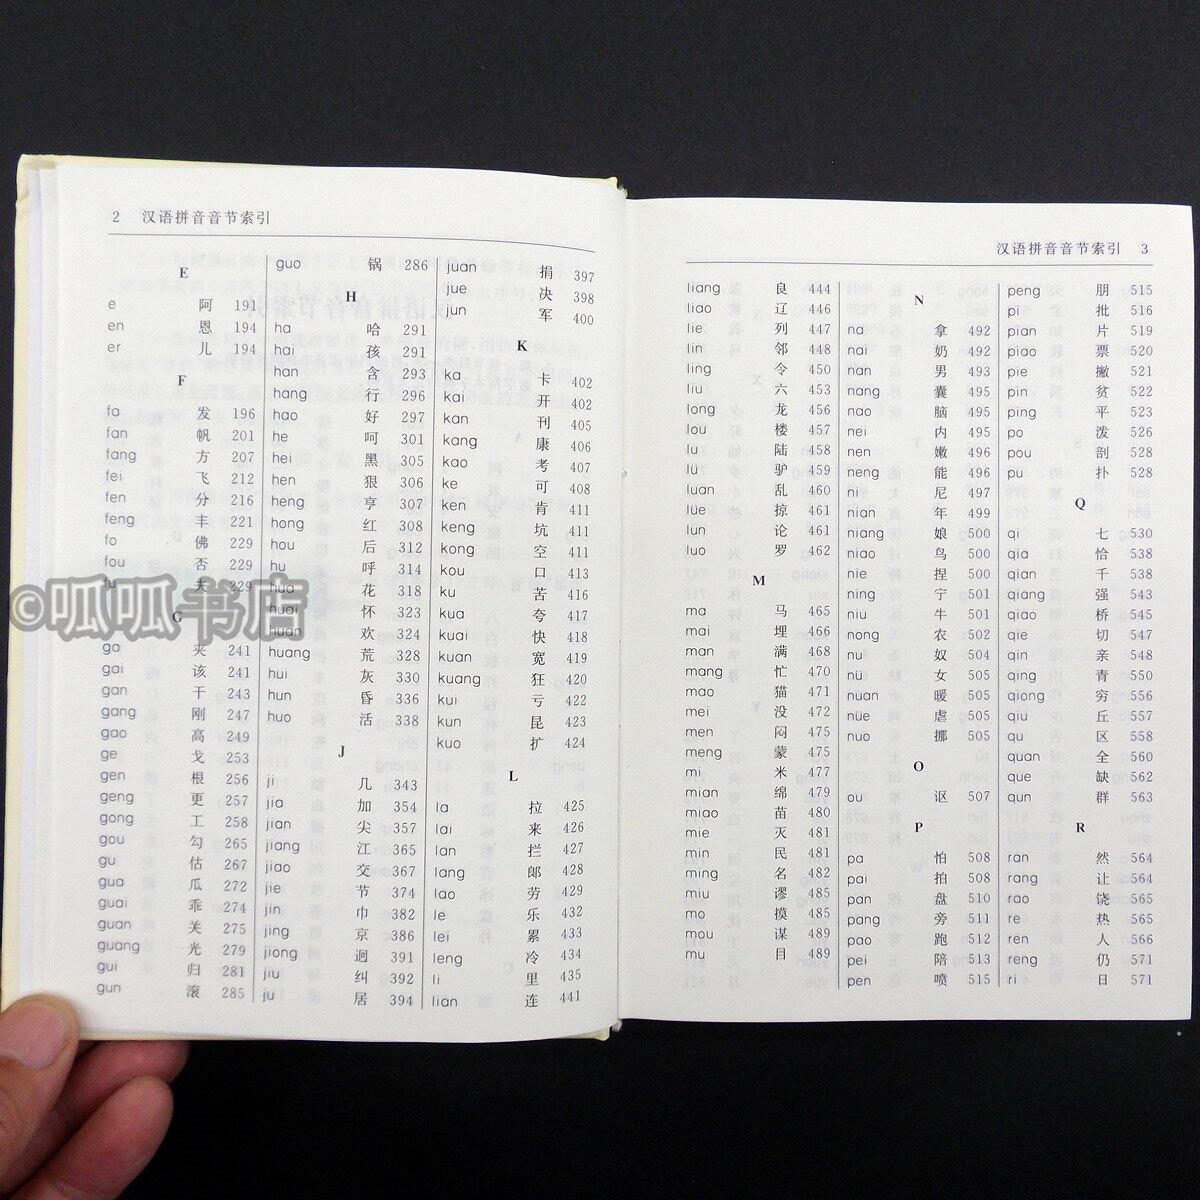 2 汉语拼音音节索引
E
e 阿 191
en 恩 194
er 儿 194
F
fa 发 196
fan 帆 201
fang 方 207
fei 飞 212
fen 分 216
feng 丰 221
fo 佛 229
fou 否 229
fu 夫 229
G
ga 夹 241
gai 该 241
gan 干 243
gang 刚 247
gao 高 249
ge 戈 253
gen 根 256
geng 更 257
gong 工 258
gou 勾 265
gu 估 267
gua 瓜 272
guai 乖 274
guan 关 275
guang 光 279
gui 归 281
gun 滚 285
guo 锅 286
H
ha 哈 291
hai 孩 291
han 含 293
hang 行 296
hao 好 297
he 呵 301
hei 黑 305
hen 狠 306
heng 亨 307
hong 红 308
hou 后 312
hu 呼 314
hua 花 318
huai 怀 323
huan 欢 324
huang 荒 328
hui 灰 330
hun 昏 336
huo 活 338
J
ji 几 343
jia 加 354
jian 尖 357
jiang 江 365
jiao 交 367
jie 节 374
jin 巾 382
jing 京 386
jiong 迥 391
jiu 纠 392
ju 居 394
juan 捐 397
jue 决 398
jun 军 400
K
ka 卡 402
kai 开 402
kan 刊 405
kang 康 406
kao 考 407
ke 可 408
ken 肯 411
keng 坑 411
kong 空 411
kou 口 413
ku 苦 416
kua 夸 417
kuai 快 418
kuan 宽 419
kuang 狂 420
kui 亏 422
kun 昆 423
kuo 扩 424
L
la 拉 425
lai 来 426
lan 拦 427
lang 郎 428
lao 劳 429
le 乐 432
lei 累 433
leng 冷 434
li 里 435
lian 连 441
汉语拼音音节索引 3
liang 良 444
liao 辽 446
lie 列 447
lin 邻 448
ling 令 450
liu 六 453
long 龙 456
lou 楼 457
lu 陆 458
lü 驴 459
luan 乱 460
lüe 掠 461
lun 论 461
luo 罗 462
M
ma 马 465
mai 埋 466
man 满 468
mang 忙 470
mao 猫 471
mei 没 472
men 闷 475
meng 蒙 475
mi 米 477
mian 绵 479
miao 苗 480
mie 灭 481
min 民 481
ming 名 482
miu 谬 485
mo 摸 485
mou 谋 489
mu 目 489
N
na 拿 492
nai 奶 492
nan 男 493
nang 囊 495
nao 脑 495
nei 内 495
nen 嫩 496
neng 能 496
ni 尼 497
nian 年 499
niang 娘 500
niao 鸟 500
nie 捏 500
ning 宁 501
niu 牛 501
nong 农 502
nu 奴 504
nü 女 505
nuan 暖 505
nüe 虐 505
nuo 挪 505
O
ou 讴 507
P
pa 怕 508
pai 拍 508
pan 盘 510
pang 旁 511
pao 跑 512
pei 陪 513
pen 喷 515
peng 朋 515
pi 批 516
pian 片 519
piao 票 520
pie 撇 521
pin 贫 522
ping 平 523
po 泼 526
pou 剖 528
pu 扑 528
Q
qi 七 530
qia 恰 538
qian 千 538
qiang 强 543
qiao 桥 545
qie 切 547
qin 亲 548
qing 青 550
qiong 穷 556
qiu 丘 557
qu 区 558
quan 全 560
que 缺 562
qun 群 563
R
ran 然 564
rang 让 564
rao 饶 565
re 热 565
ren 人 566
reng 仍 571
ri 日 571
©呱呱书店